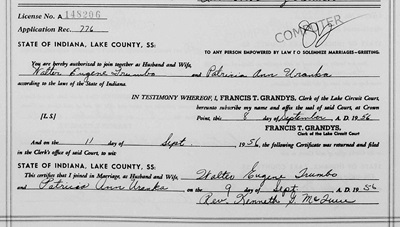 License No. A 148206
COMPUTER
Application Rec. 776
STATE OF INDIANA, LAKE COUNTY, SS:
TO ANY PERSON EMPOWERED BY LAW TO SOLEMNIZE MARRIAGES—GREETING:
You are hereby authorized to join together as Husband and Wife,
Walter Eugene Trumbo and Patricia Ann Uranka
according to the laws of the State of Indiana.
IN TESTIMONY WHEREOF, I, FRANCIS T. GRANDYS, Clerk of the Lake Circuit Court,
hereunto subscribe my name and affix the seal of said Court, at Crown
[L.S.] Point, this 8 day of September A. D. 1956
FRANCIS T. GRANDYS,
Clerk of the Lake Circuit Court.
And on the 11 day of Sept. 1956, the following Certificate was returned and filed
in the Clerk's office of said Court, to wit:
STATE OF INDIANA, LAKE COUNTY, SS:
This certifies that I joined in Marriage, as Husband and Wife, Walter Eugene Trumbo
and Patricia Ann Uranka on the 9 day of Sept A. D. 1956
Rev. Kenneth